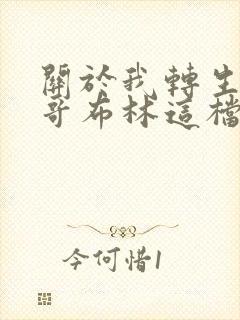 關於我轉生
哥布林這檔
今何惜1